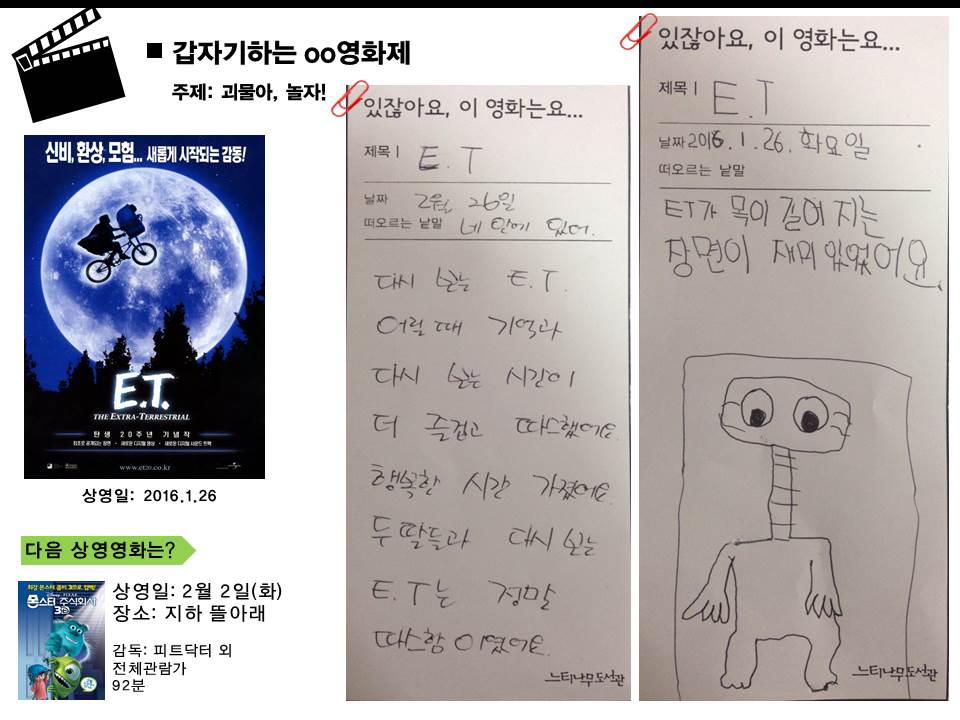 ■ 갑자기하는 oo영화제
주제: 괴물아, 놀자!
신비, 환상, 모험... 새롭게 시작되는 감동!
E.T.
THE EXTRA-TERRESTRIAL
탄생 20주년 기념작
www.et20.co.kr
상영일: 2016.1.26
다음 상영영화는?
몬스터 주식회사
3D
상영일: 2월 2일(화)
장소: 지하 뜰아래
감독: 피트닥터 외
전체관람가
92분
있잖아요, 이 영화는요...
제목 | E. T
날짜 2월 26일
떠오르는 낱말 네 안에 있어.
다시 보는 E.T.
어릴 때 기억과
다시 보는 시간이
더 즐겁고 따스했어요.
행복한 시간 가졌어요.
두 딸들과 다시 보는
E.T는 정말
따스함이였어요.
느티나무도서관
있잖아요, 이 영화는요...
제목 | E.T
날짜 2016.1.26. 화요일
떠오르는 낱말
ET가 목이 길어 지는
장면이 재미 있었어요.
느티나무도서관